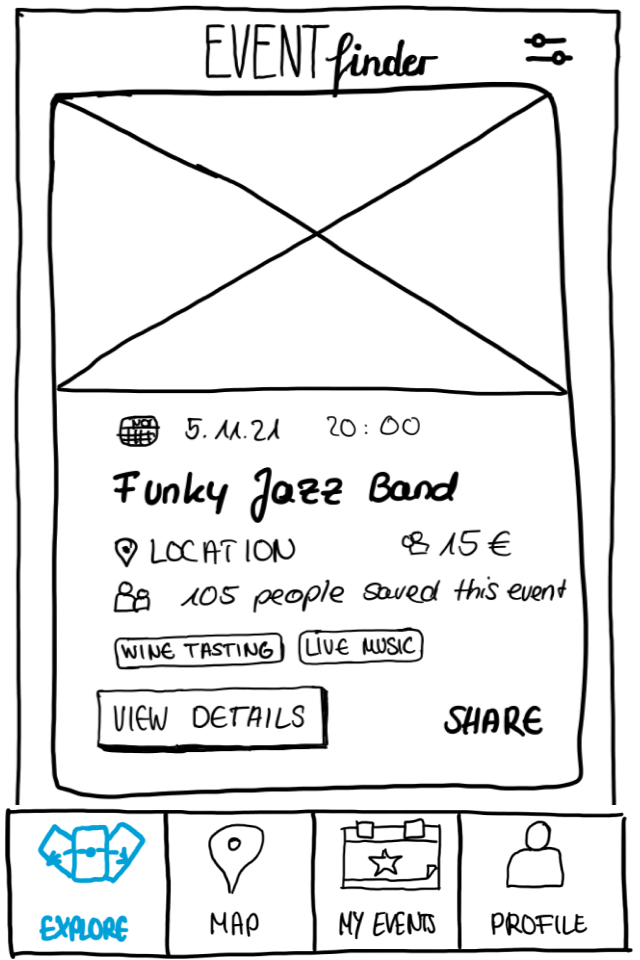 EVENT finder
5.11.21 20:00
Funky Jazz Band
LOCATION 15 €
105 people saved this event
WINE TASTING LIVE MUSIC
VIEW DETAILS SHARE
EXPLORE MAP MY EVENTS PROFILE